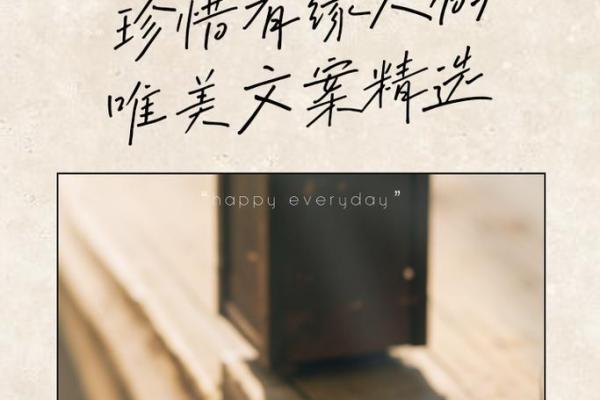 珍惜有缘人的
唯美文案精选
“happy everyday”